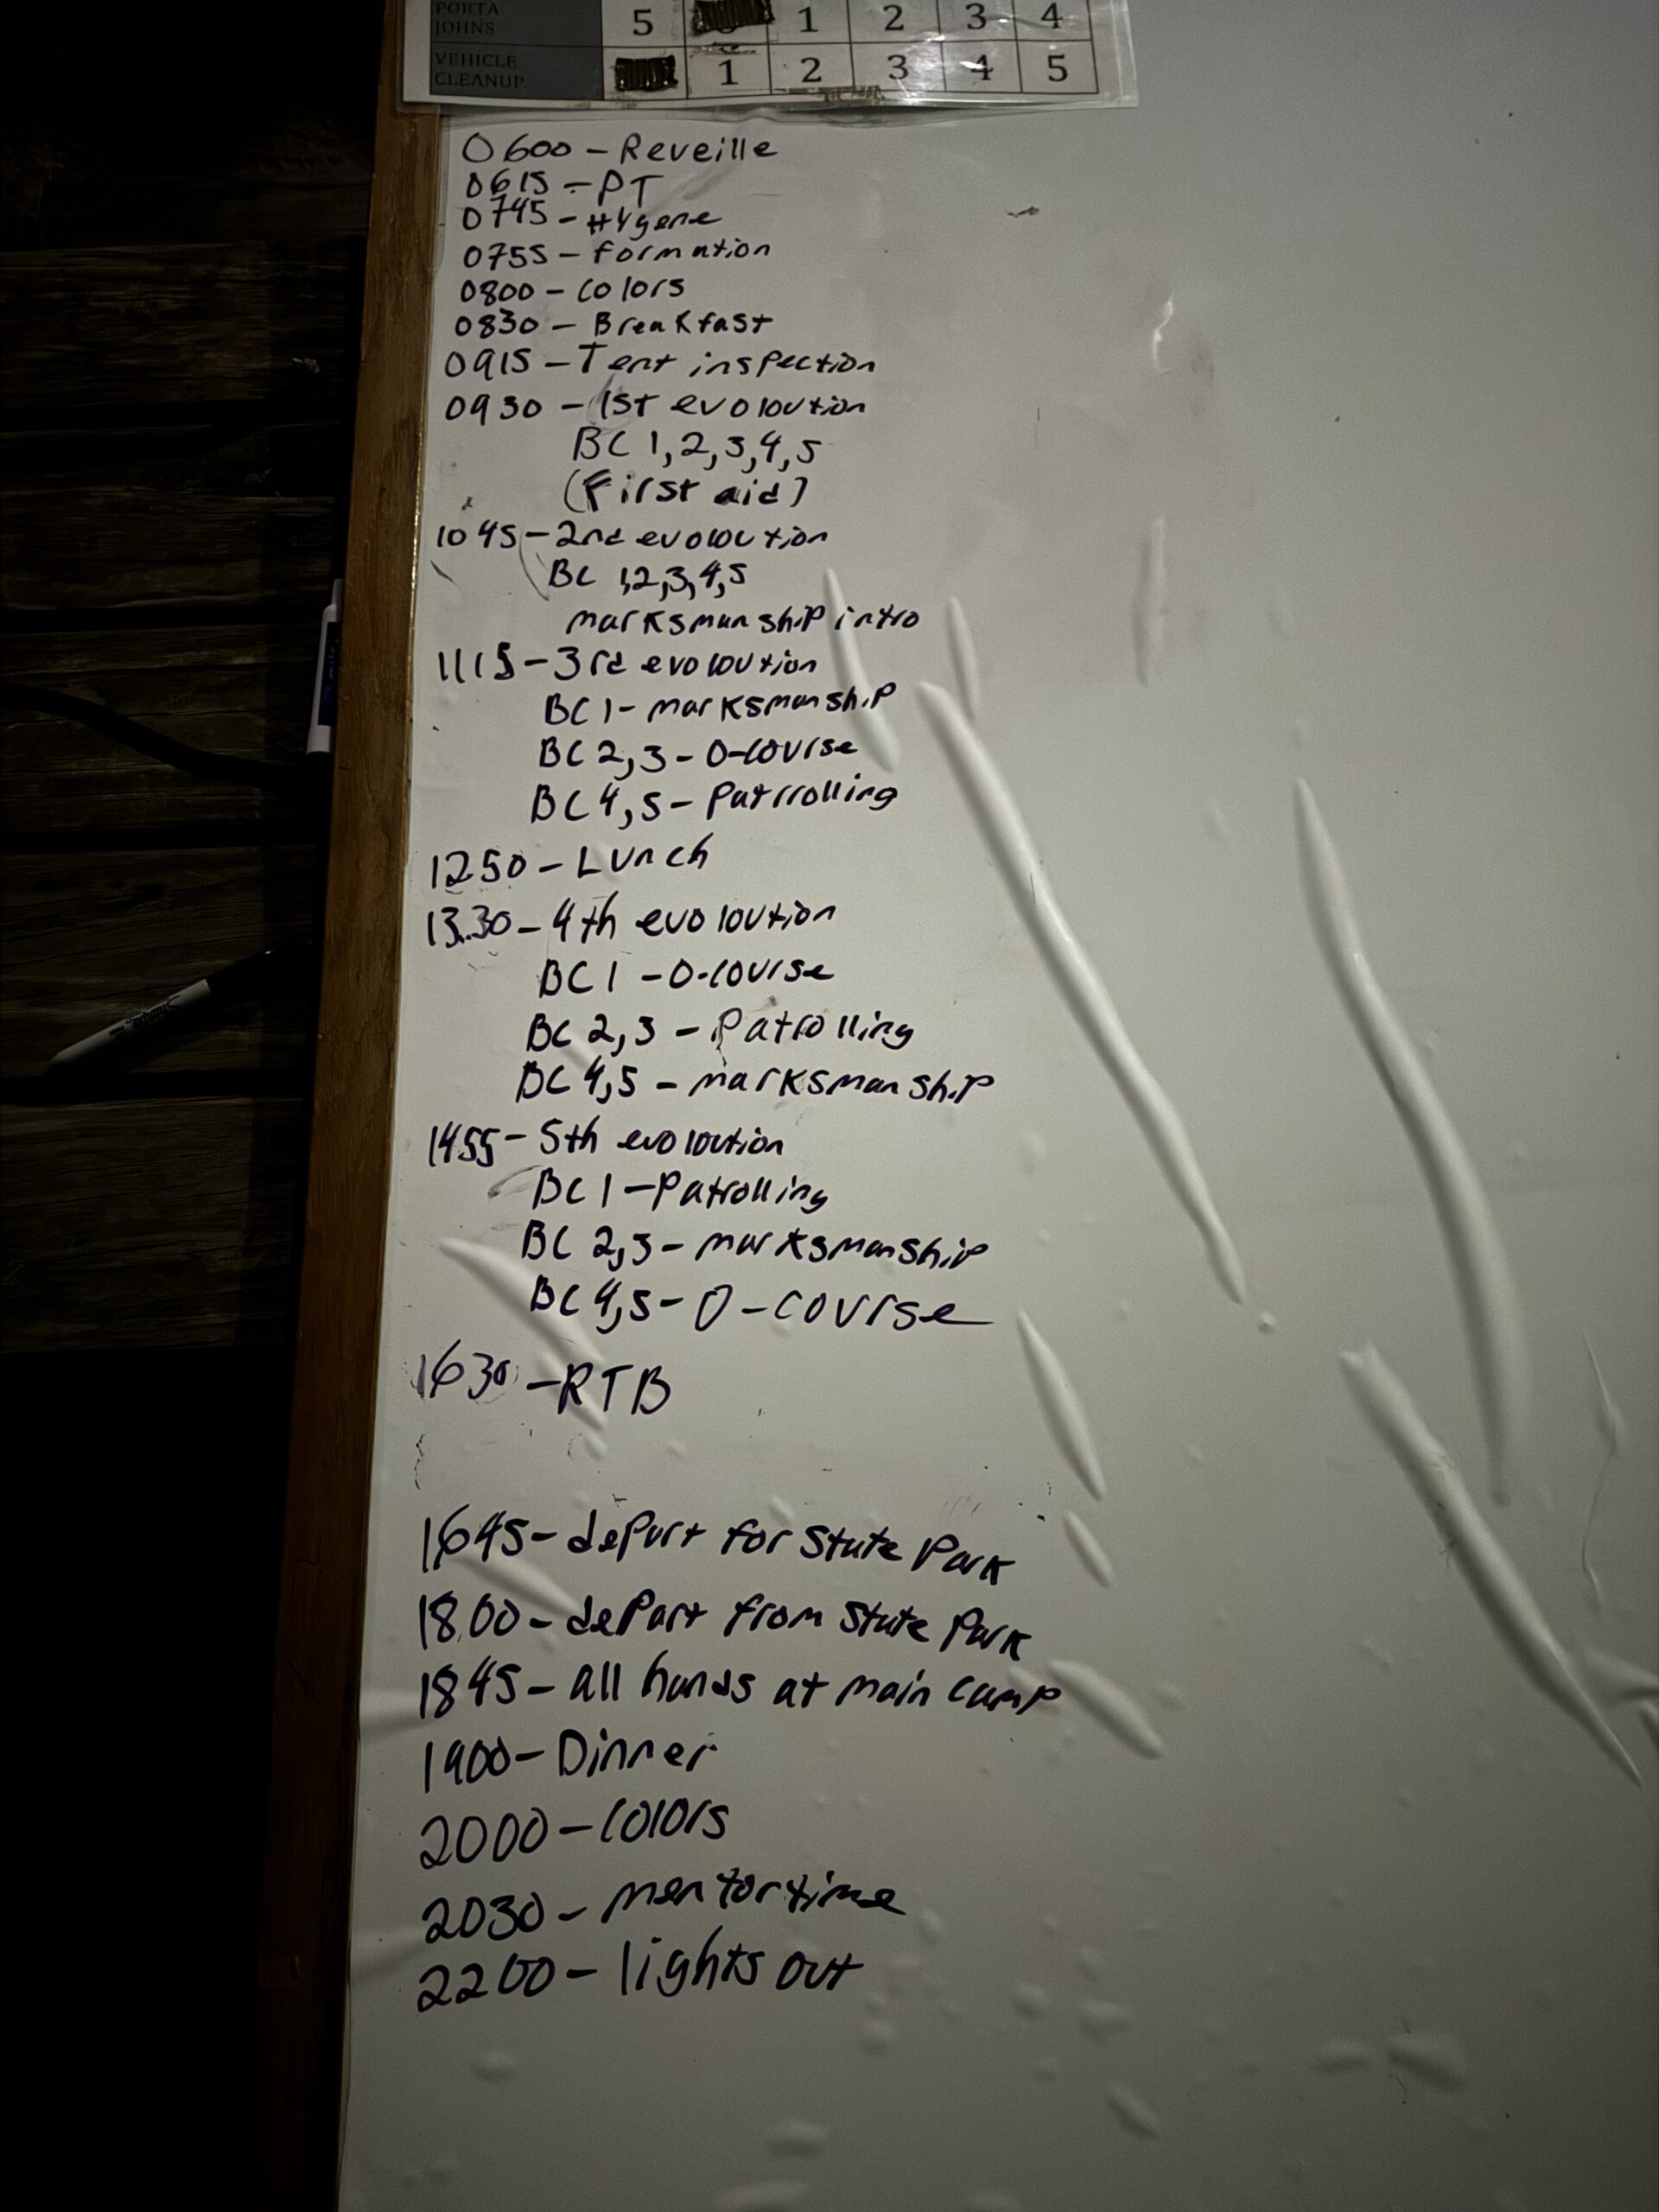 PORTA JOHNS 5 1 2 3 4
VEHICLE CLEANUP 1 2 3 4 5
0600 - Reveille
0615 - PT
0745 - Hygene
0755 - formation
0800 - colors
0830 - Breakfast
0915 - Tent inspection
0930 - 1st evoloution
BC 1,2,3,4,5
(First aid)
1045 - 2nd evoloution
BC 1,2,3,4,5
marksmanship intro
1115 - 3rd evoloution
BC 1 - marksmanship
BC 2,3 - O-course
BC 4,5 - Patrrolling
1250 - Lunch
1330 - 4th evoloution
BC 1 - O-course
BC 2,3 - Patrolling
BC 4,5 - marksmanship
1455 - 5th evoloution
BC 1 - Patrolling
BC 2,3 - marksmanship
BC 4,5 - O-course
1630 - RTB
1645 - depart for State Park
1800 - depart from State Park
1845 - all hands at main camp
1900 - Dinner
2000 - colors
2030 - mentor time
2200 - lights out